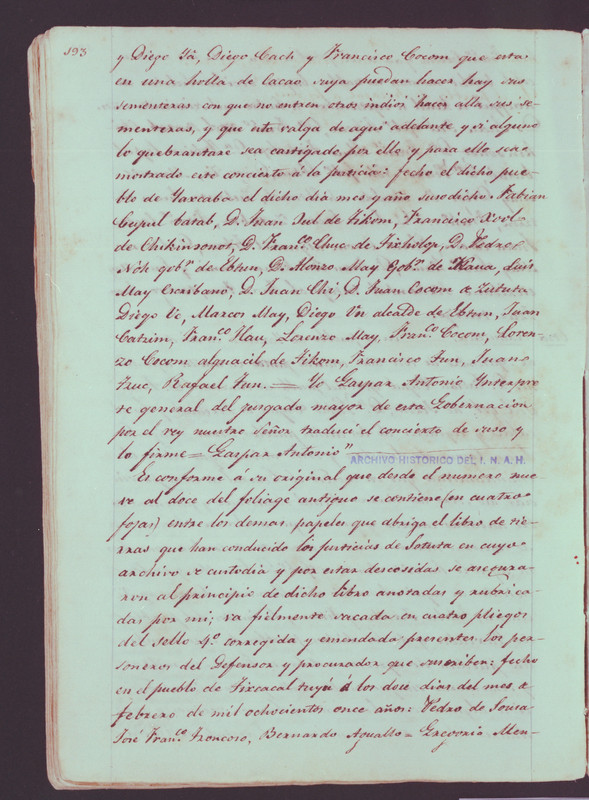 193
y Diego Yâ, Diego Cach y Francisco Cocom que esta
en una holla de Cacao cuya puedan hacer hay sus
sementeras con que no entren otros indios hacer alla sus se-
menteras, y que esto valga de aqui adelante y si alguno
lo quebrantare sea castigado por ello y para ello sea
mostrado este concierto á la justicia: fecho el dicho pue-
blo de Yaxcaba el dicho dia mes y año susodicho. Fabian
Cupul batab, D. Juan Xul de Tikom, Francisco Xool
de Chikinsonot, D. Franco. Chuc de Tixholop, D. Pedro
Nóh gobr. de Ebtun, D. Alonzo May Gobr. de Kaua, Luis
May escribano, D. Juan Chi, D. Juan Cocom de Zututa
Diego Uc, Marcos May, Diego Un alcalde de Ebtun, Juan
Catzim, Franco. Hau, Lorenzo May, Franco. Cocom, Loren-
zo Cocom alguacil de Tikom, Francisco Tun, Juan
Tzuc, Rafael Tun. = Yo Gaspar Antonio Ynterpre-
te general del juzgado mayor de esta Gobernacion
por el rey nuestro señor traduci el concierto de suso y
lo firme = Gaspar Antonio"
ARCHIVO HISTORICO DEL I. N. A. H.
Es conforme á su original que desde el numero nue-
ve al doce del foliage antiguo se contiene (en cuatro
fojas) entre los demas papeles que abriga el libro de tie-
rras que han conducido los justicias de Sotuta en cuyo
archivo se custodia y por estar descosidas se asegura-
ron al principio de dicho libro anotadas y rubrica-
das por mi; va fielmente sacada en cuatro pliegos
del sello 4º. corregida y emendada presentes los per-
soneros del Defensor y procurador que suscriben: fecho
en el pueblo de Tixcacal tuyú á los doce dias del mes de
febrero de mil ochocientos once años: Pedro de Souza
José Franco. Troncoso, Bernardo Agualto = Gregorio Men-